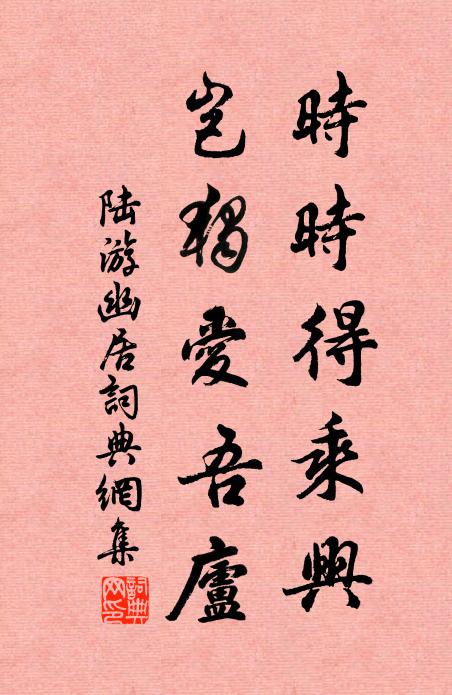 時時得乘興
豈獨愛吾廬
陆游幽居詞典網集
詞典網印